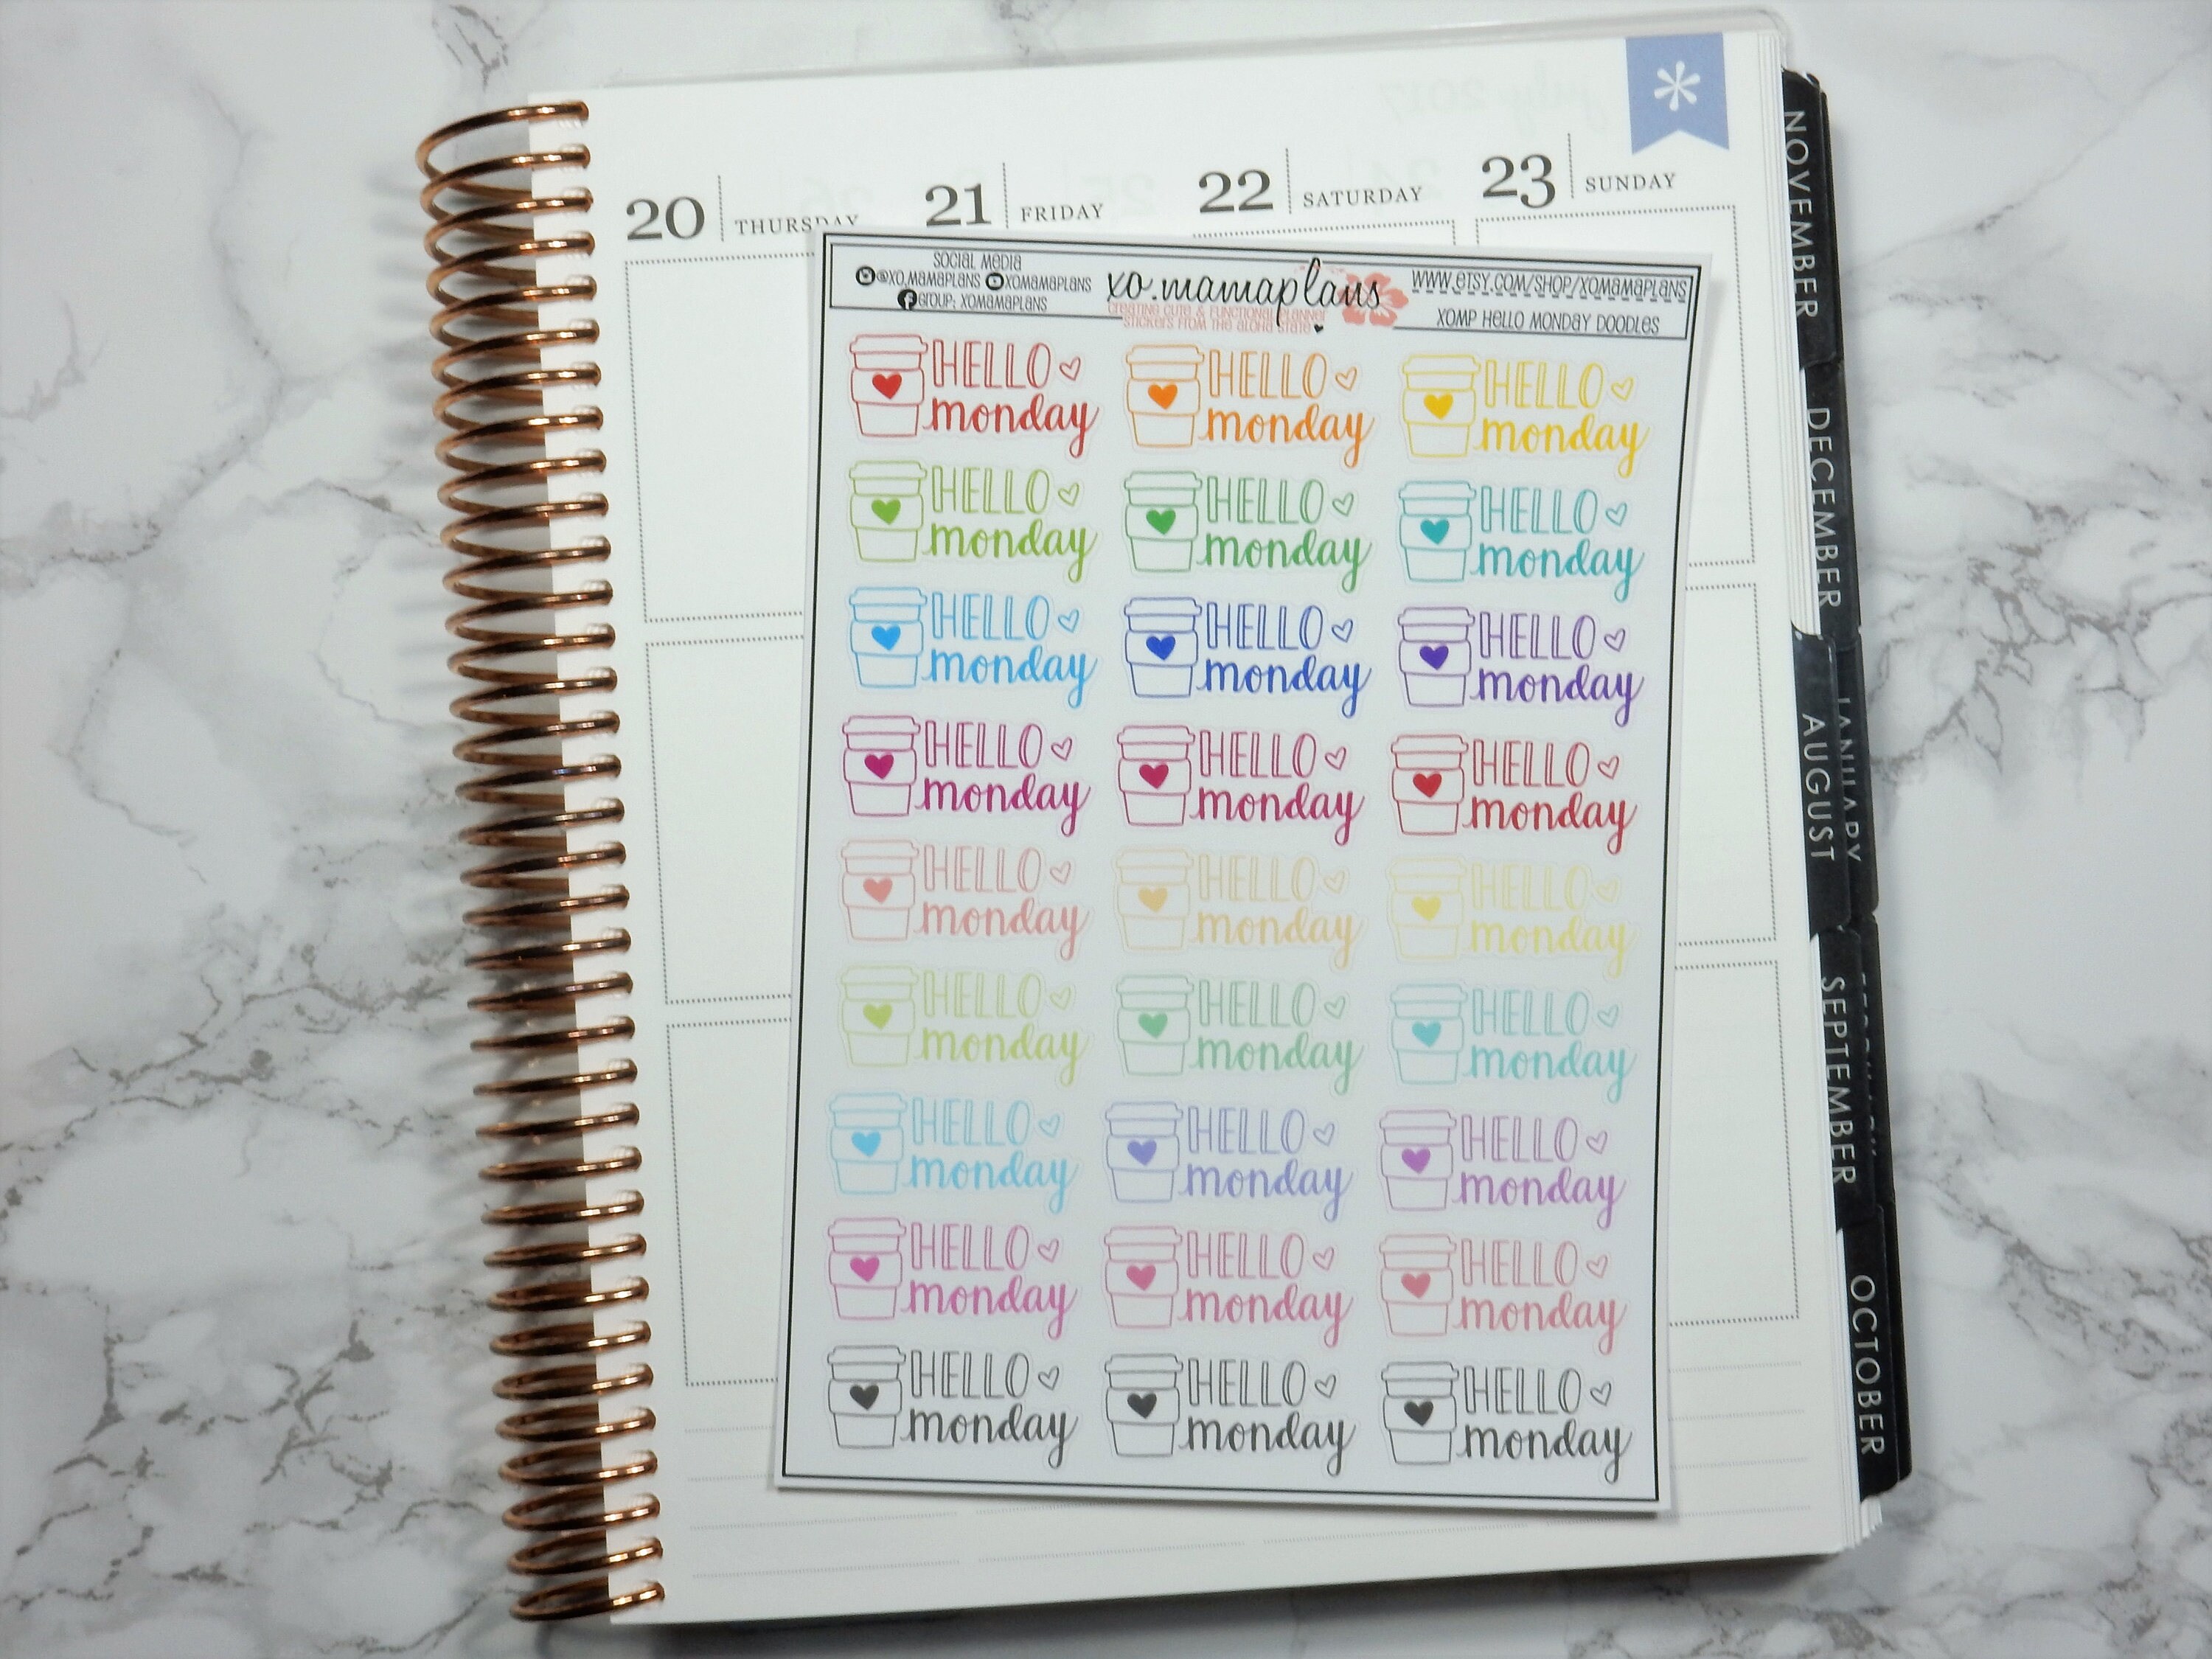 20 THURSDAY 21 FRIDAY 22 SATURDAY 23 SUNDAY
SOCIAL MEDIA
@XO.MAMAPLANS XOMAMAPLANS
GROUP: XOMAMAPLANS
xo.mamaplans
CREATING CUTE & FUNCTIONAL PLANNER
STICKERS FROM THE ALOHA STATE
WWW.ETSY.COM/SHOP/XOMAMAPLANS
XOMP HELLO MONDAY DOODLES
HELLO HELLO HELLO
monday monday monday
HELLO HELLO HELLO
monday monday monday
HELLO HELLO HELLO
monday monday monday
HELLO HELLO HELLO
monday monday monday
HELLO HELLO HELLO
monday monday monday
HELLO HELLO HELLO
monday monday monday
HELLO HELLO HELLO
monday monday monday
HELLO HELLO HELLO
monday monday monday
HELLO HELLO HELLO
monday monday monday
NOVEMBER
DECEMBER
JANUARY
AUGUST
SEPTEMBER
OCTOBER